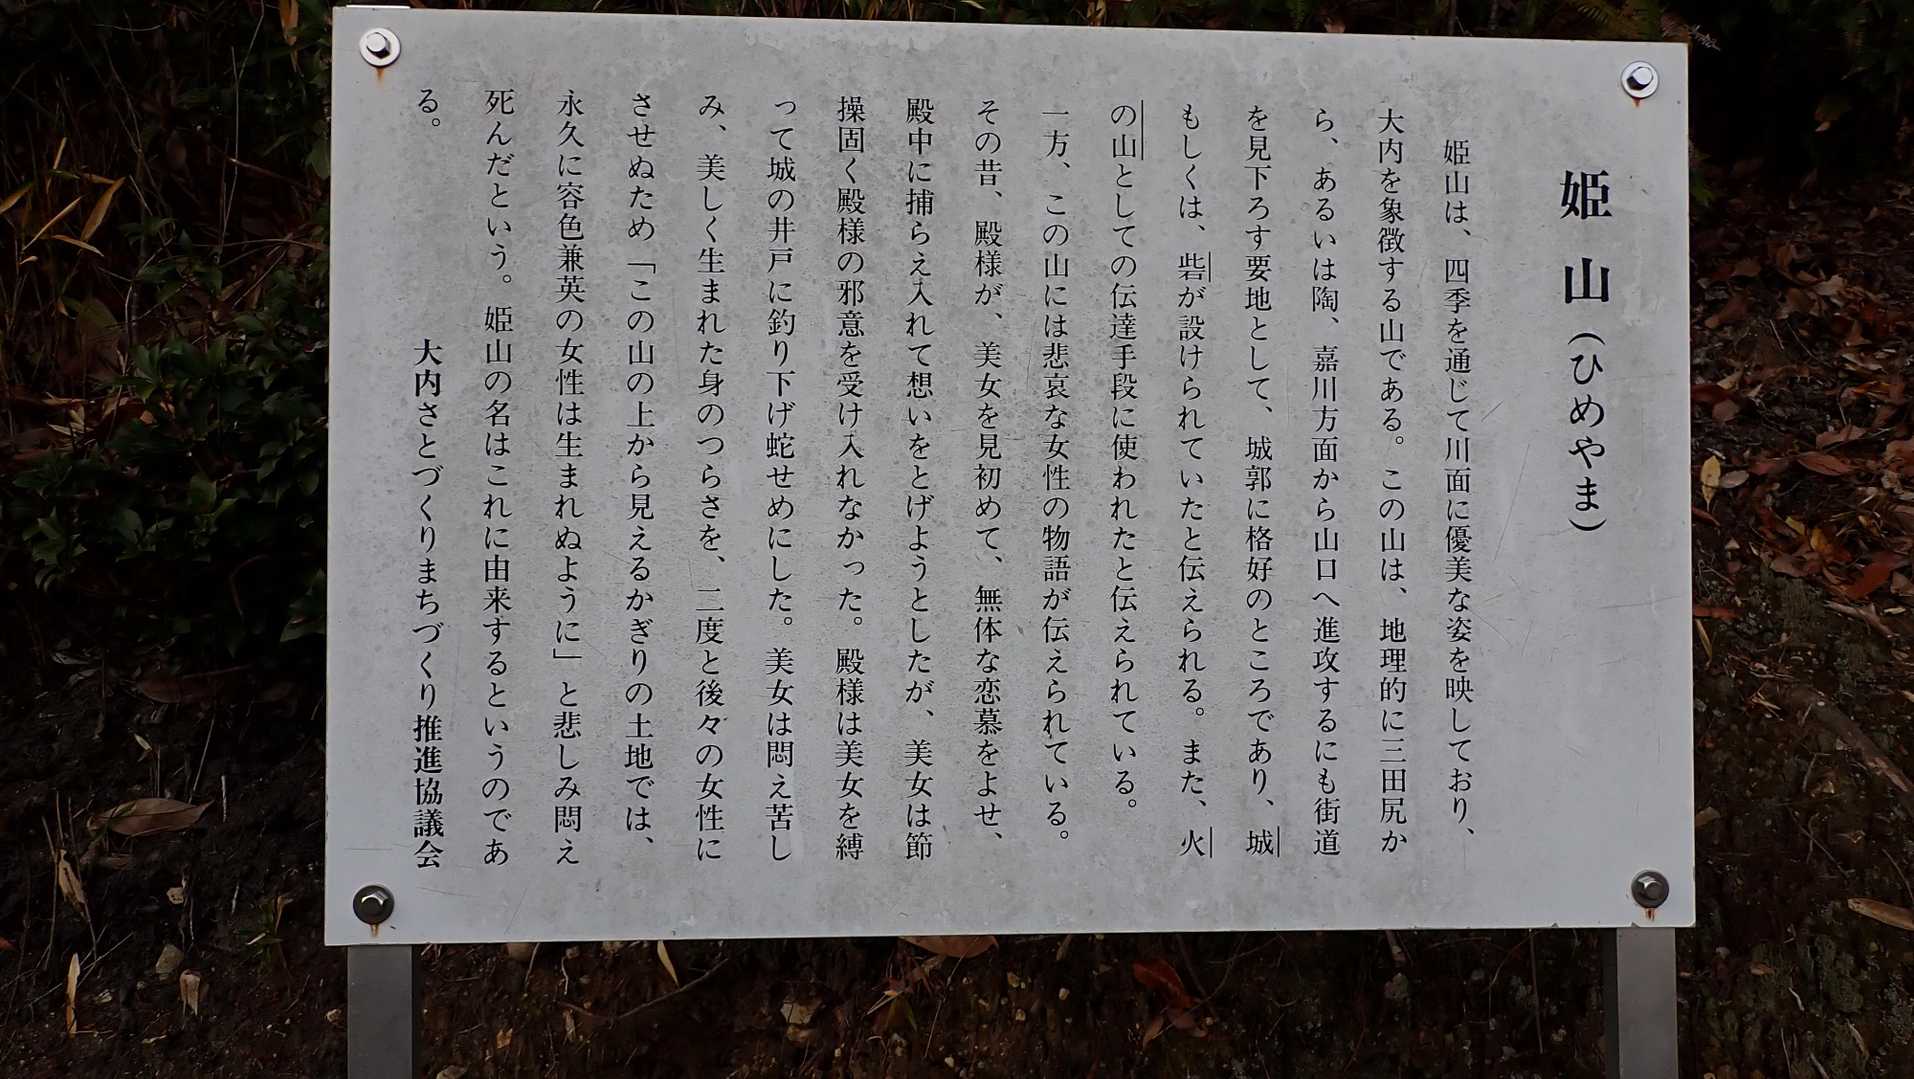 姫山(ひめやま)
姫山は、四季を通じて川面に優美な姿を映しており、
大内を象徴する山である。この山は、地理的に三田尻か
ら、あるいは陶、嘉川方面から山口へ進攻するにも街道
を見下ろす要地として、城郭に格好のところであり、城
もしくは、砦が設けられていたと伝えられる。また、火
の山としての伝達手段に使われたと伝えられている。
一方、この山には悲哀な女性の物語が伝えられている。
その昔、殿様が、美女を見初めて、無体な恋慕をよせ、
殿中に捕らえ入れて想いをとげようとしたが、美女は節
操固く殿様の邪意を受け入れなかった。殿様は美女を縛
って城の井戸に釣り下げ蛇せめにした。美女は悶え苦し
み、美しく生まれた身のつらさを、二度と後々の女性に
させぬため「この山の上から見えるかぎりの土地では、
永久に容色兼英の女性は生まれぬように」と悲しみ悶え
死んだという。姫山の名はこれに由来するというのであ
る。
大内さとづくりまちづくり推進協議会